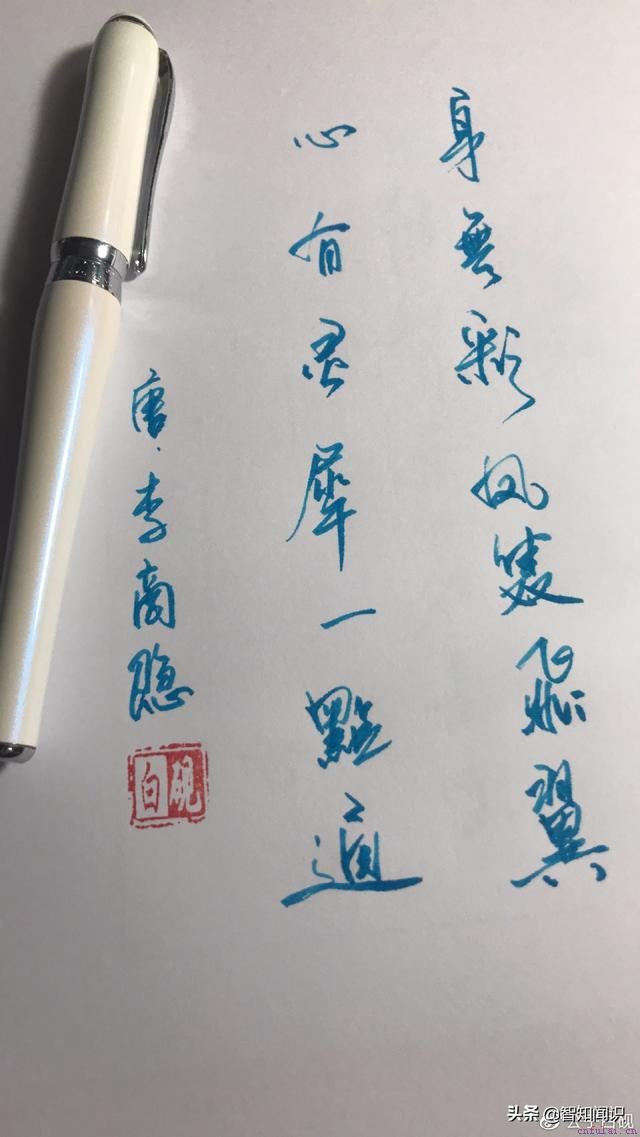 身無彩凤雙飛翼
心有灵犀一點通
唐·李商隐
白砚
头条 @智知闻识